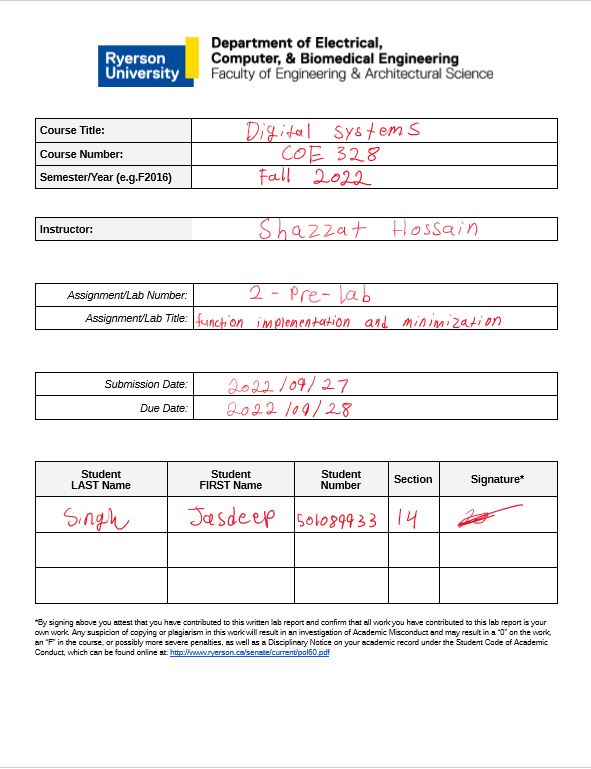 Ryerson
University
Department of Electrical,
Computer, & Biomedical Engineering
Faculty of Engineering & Architectural Science
Course Title: Digital systems
Course Number: COE 328
Semester/Year (e.g.F2016) Fall 2022
Instructor: Shazzat Hossain
Assignment/Lab Number: 2 - Pre-lab
Assignment/Lab Title: function implementation and minimization
Submission Date: 2022/09/27
Due Date: 2022/09/28
Student LAST Name Student FIRST Name Student Number Section Signature*
Singh Jasdeep 501089933 14
*By signing above you attest that you have contributed to this written lab report and confirm that all work you have contributed to this lab report is your
own work. Any suspicion of copying or plagiarism in this work will result in an investigation of Academic Misconduct and may result in a "0" on the work,
an "F" in the course, or possibly more severe penalties, as well as a Disciplinary Notice on your academic record under the Student Code of Academic
Conduct, which can be found online at: http://www.ryerson.ca/senate/current/pol60.pdf